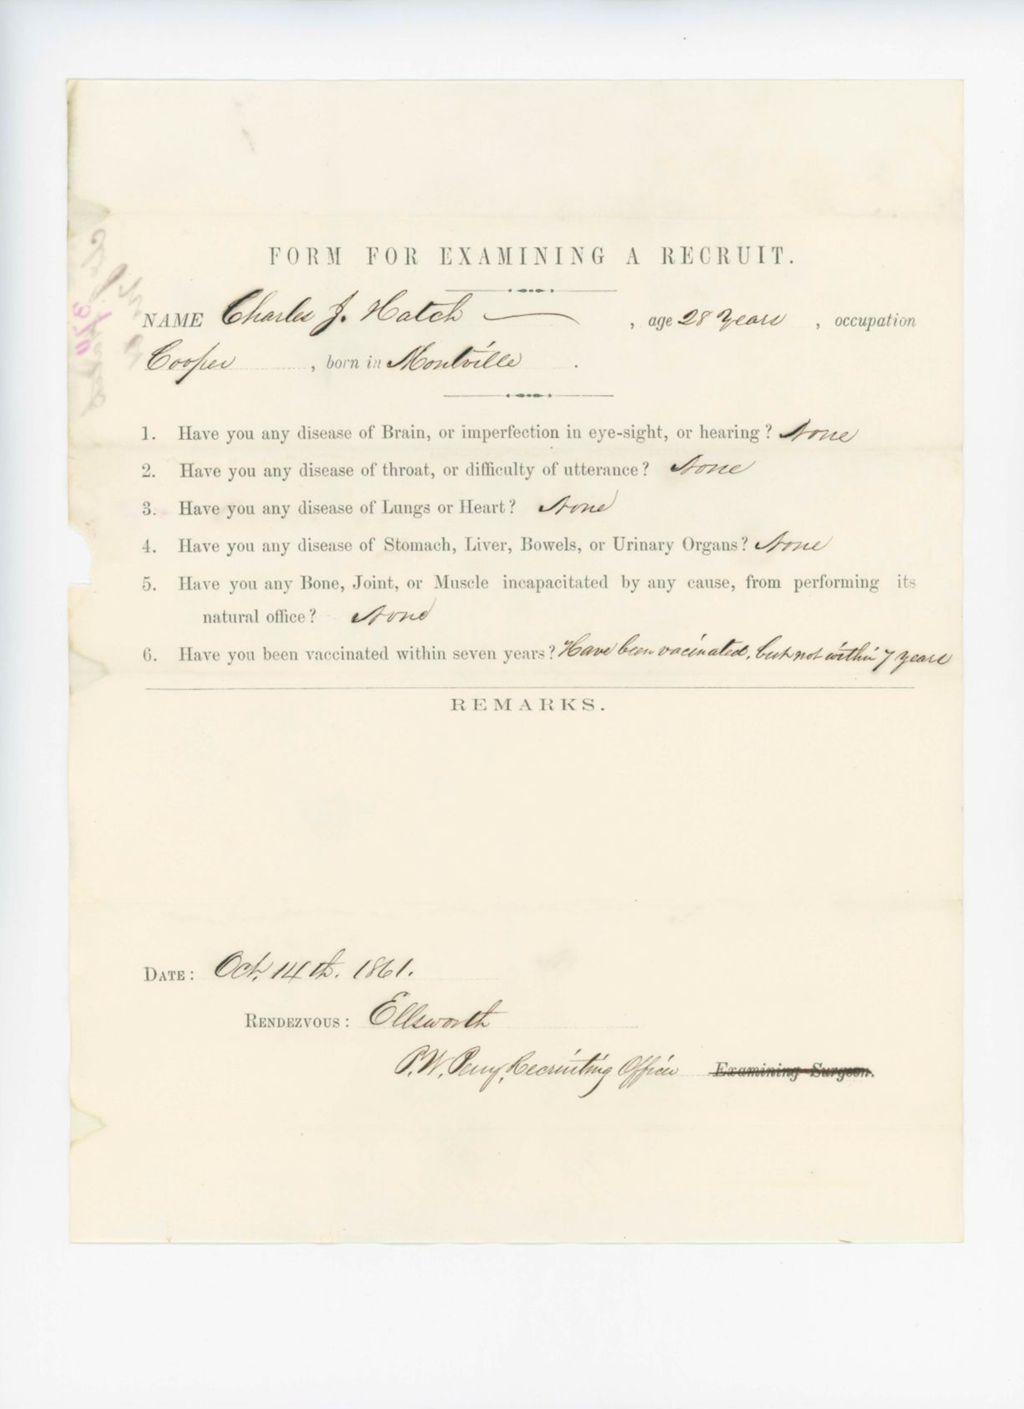 FORM FOR EXAMINING A RECRUIT.
NAME Charles J. Hatch , age 28 Years , occupation
Cooper , born in Montville .
1. Have you any disease of Brain, or imperfection in eye-sight, or hearing? None
2. Have you any disease of throat, or difficulty of utterance? None
3. Have you any disease of Lungs or Heart? None
4. Have you any disease of Stomach, Liver, Bowels, or Urinary Organs? None
5. Have you any Bone, Joint, or Muscle incapacitated by any cause, from performing its
natural office? None
6. Have you been vaccinated within seven years? Have been vacinated, but not within 7 years
REMARKS.
DATE: Oct. 14th. 1861.
RENDEZVOUS: Ellsworth
P.W. Perry, Recruiting Officer Examining Surgeon.